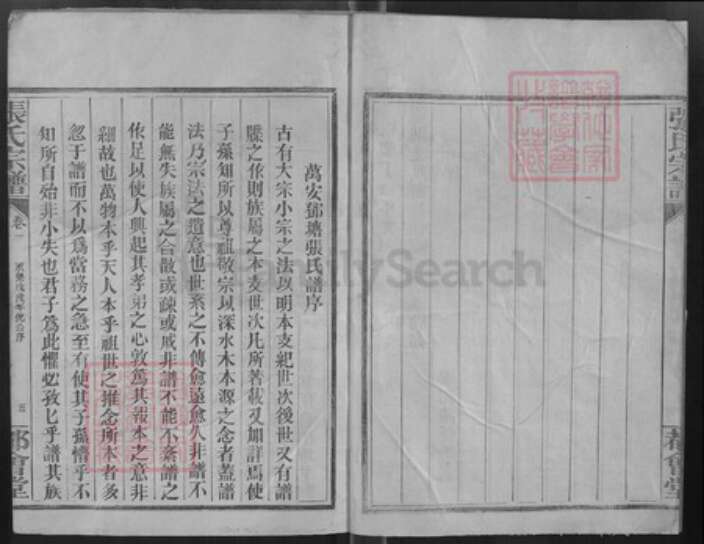 張氏宗譜
都會堂
萬安鄧塘張氏譜序
古有大宗小宗之法以明本支紀世次後世又有譜
牒之作則族屬之本支世次凡所著載又加詳焉使
子孫知所以尊祖敬宗以深水木本源之念者蓋譜
法乃宗法之遺意也世系之不傳愈遠愈久非譜不
能無失族屬之合散或疎或戚非譜不能不紊譜之
依足以使人興起其孝弟之心敦篤其報本之意非
細故也萬物本乎天人本乎祖世之推念所本者多
忽于譜而不以為當務之急至有使其子孫懵乎不
知所自始非小失也君子為此懼必孜匕乎譜其族
張氏宗譜
卷一
五
都會堂
FamilySearch